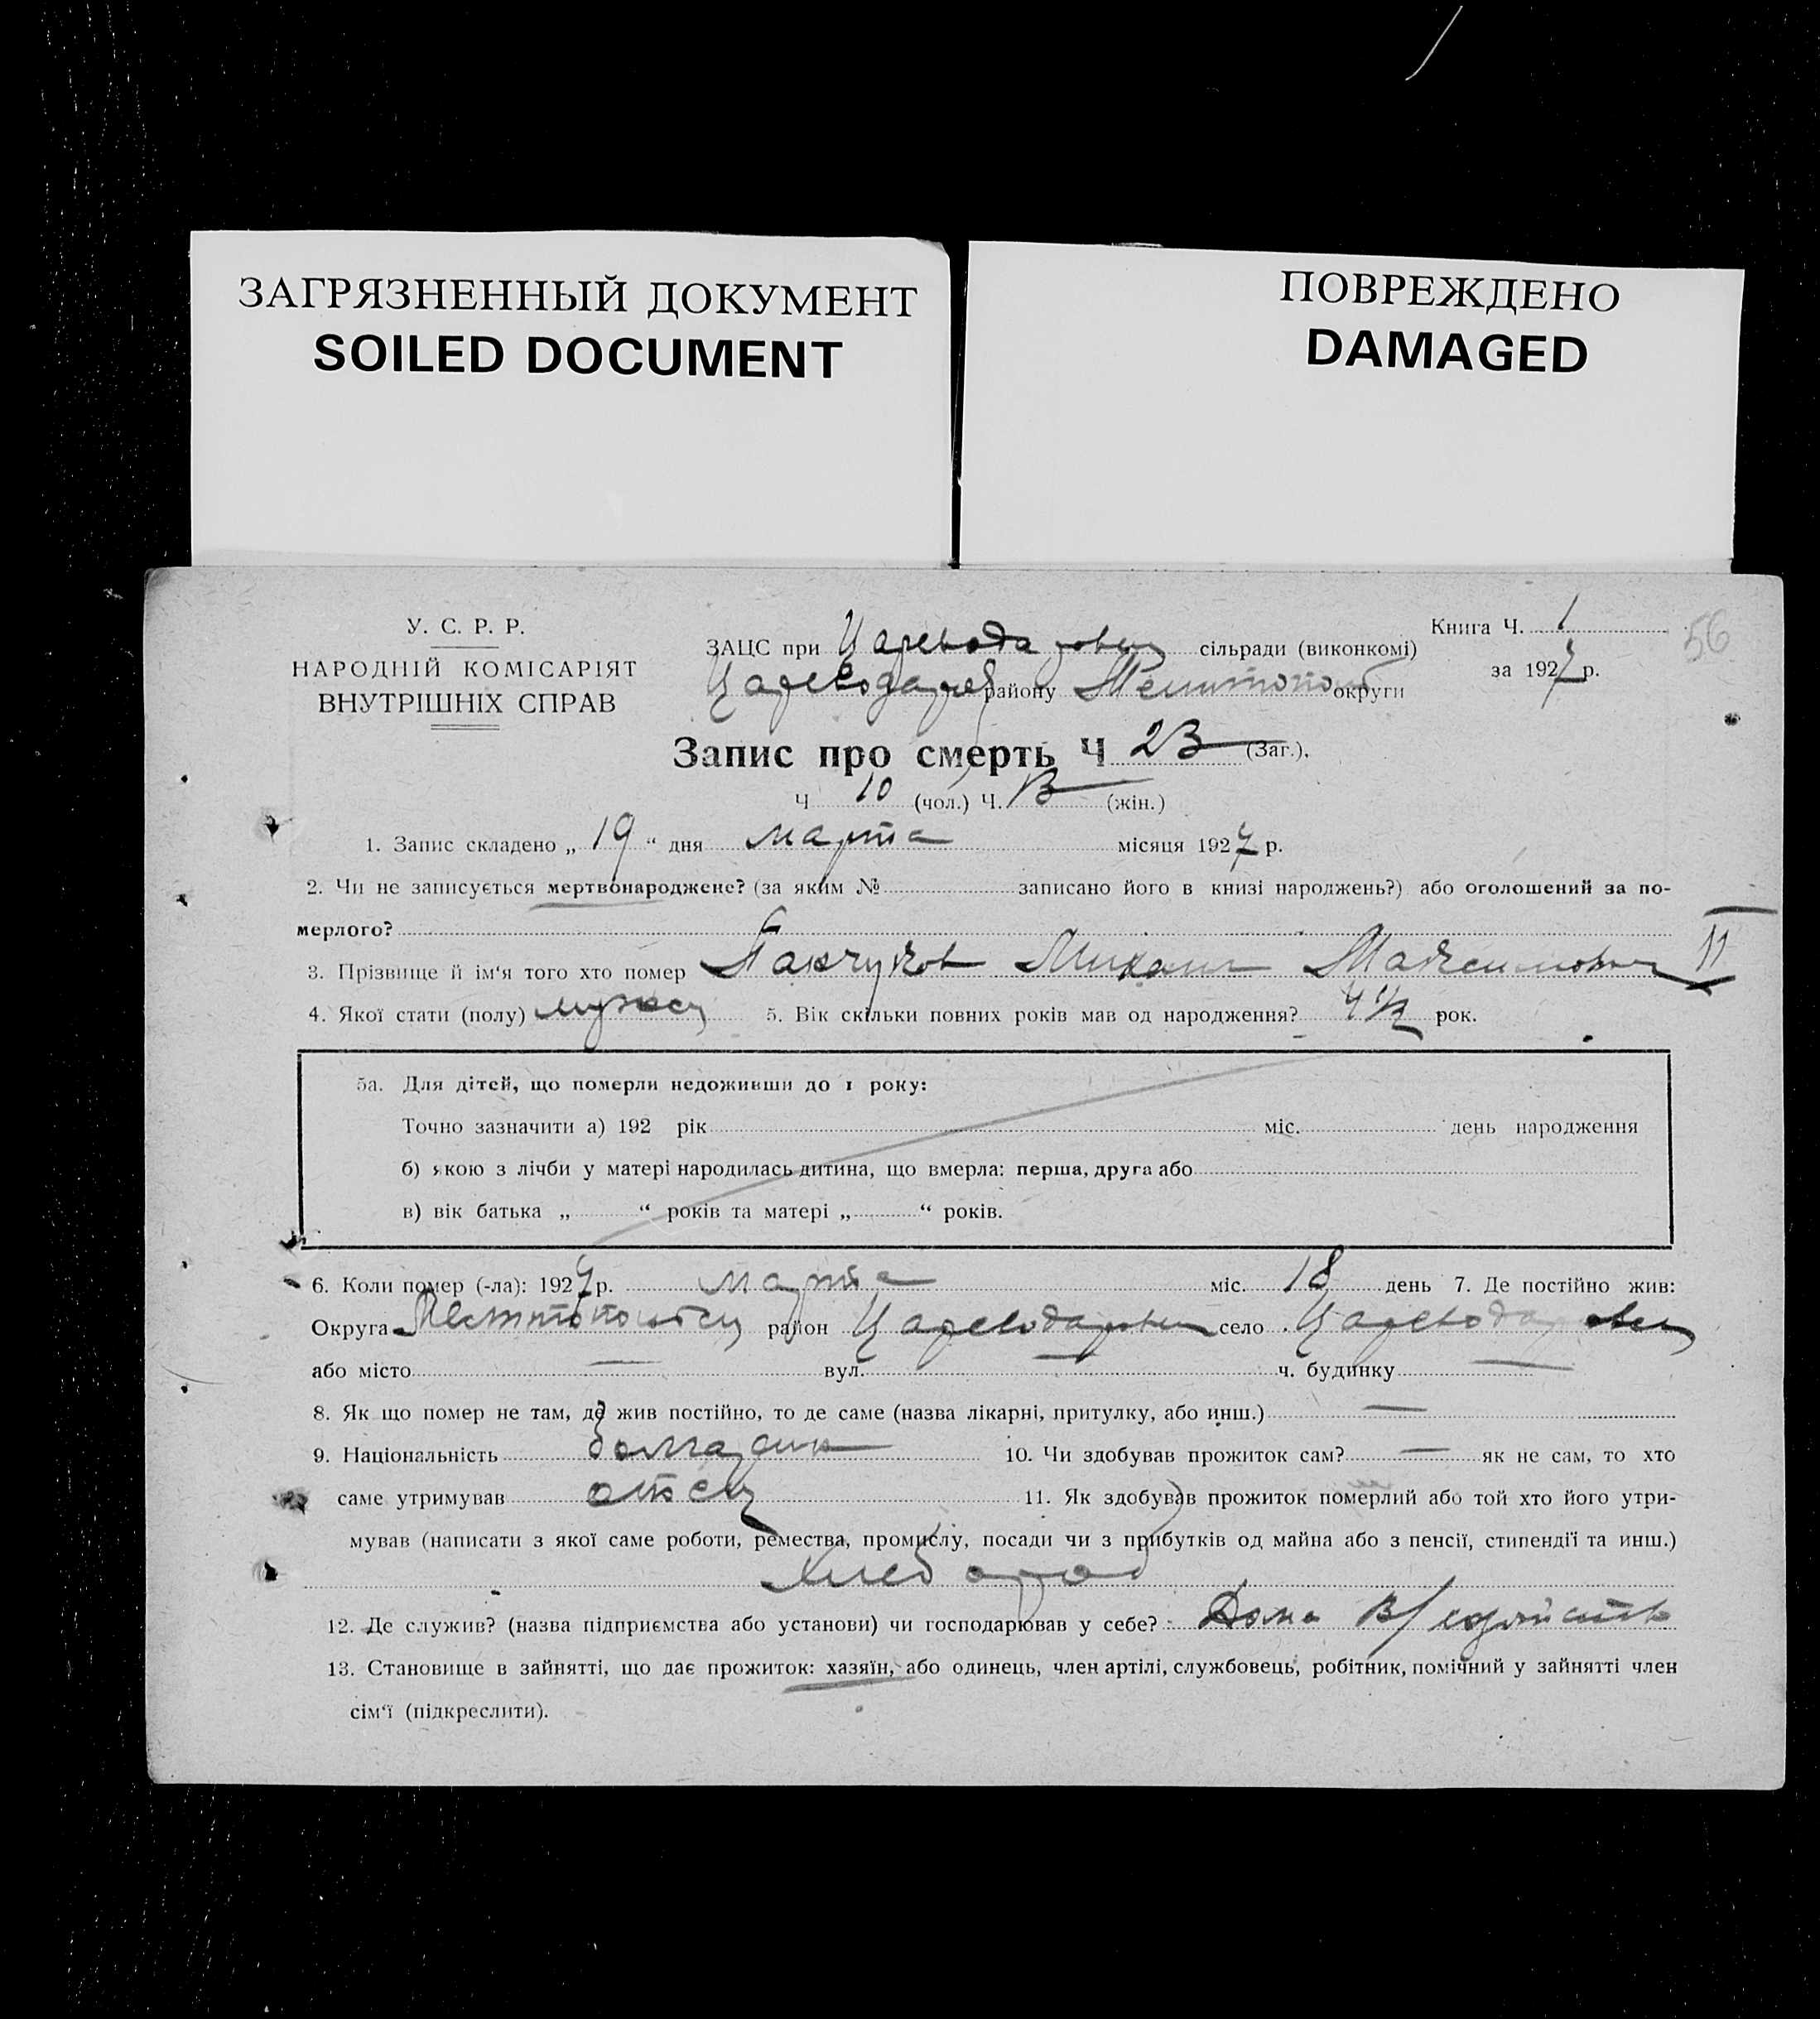 ЗАГРЯЗНЕННЫЙ ДОКУМЕНТ
SOILED DOCUMENT
ПОВРЕЖДЕНО
DAMAGED
У. С. Р. Р.
НАРОДНІЙ КОМІСАРІЯТ
ВНУТРІШНІХ СПРАВ
ЗАЦС при сільради (виконкомі)
району округи
Книга Ч. 1
за 1927 р.
56
Запис про смерть Ч 23 (Заг.).
Ч 10 (чол.) Ч. (жін.)
1. Запис складено „ 19 “ дня марта місяця 1927 р.
2. Чи не записується мертвонароджене? (за яким № записано його в книзі народжень?) або оголошений за по-
мерлого?
3. Прізвище й ім‘я того хто помер Михаил Максимович
II
4. Якої стати (полу) мужск 5. Вік скільки повних років мав од народження? 4 1/2 рок.
5а. Для дітей, що померли недоживши до 1 року:
Точно зазначити а) 192 рік міс. день народження
б) якою з лічби у матері народилась дитина, що вмерла: перша, друга або
в) вік батька „ “ років та матері „ “ років.
6. Коли помер (-ла): 1927 р. марта міс. 18 день 7. Де постійно жив:
Округа район село
або місто — вул. — ч. будинку —
8. Як що помер не там, де жив постійно, то де саме (назва лікарні, притулку, або инш.) —
9. Національність болгарин 10. Чи здобував прожиток сам? — як не сам, то хто
саме утримував отец 11. Як здобував прожиток померлий або той хто його утри-
мував (написати з якої саме роботи, ремества, промислу, посади чи з прибутків од майна або з пенсії, стипендії та инш.)
хлебороб
12. Де служив? (назва підприємства або установи) чи господарював у себе? Дома
13. Становище в зайнятті, що дає прожиток: хазяїн, або одинець, член артілі, службовець, робітник, помічний у зайнятті член
сім‘ї (підкреслити).